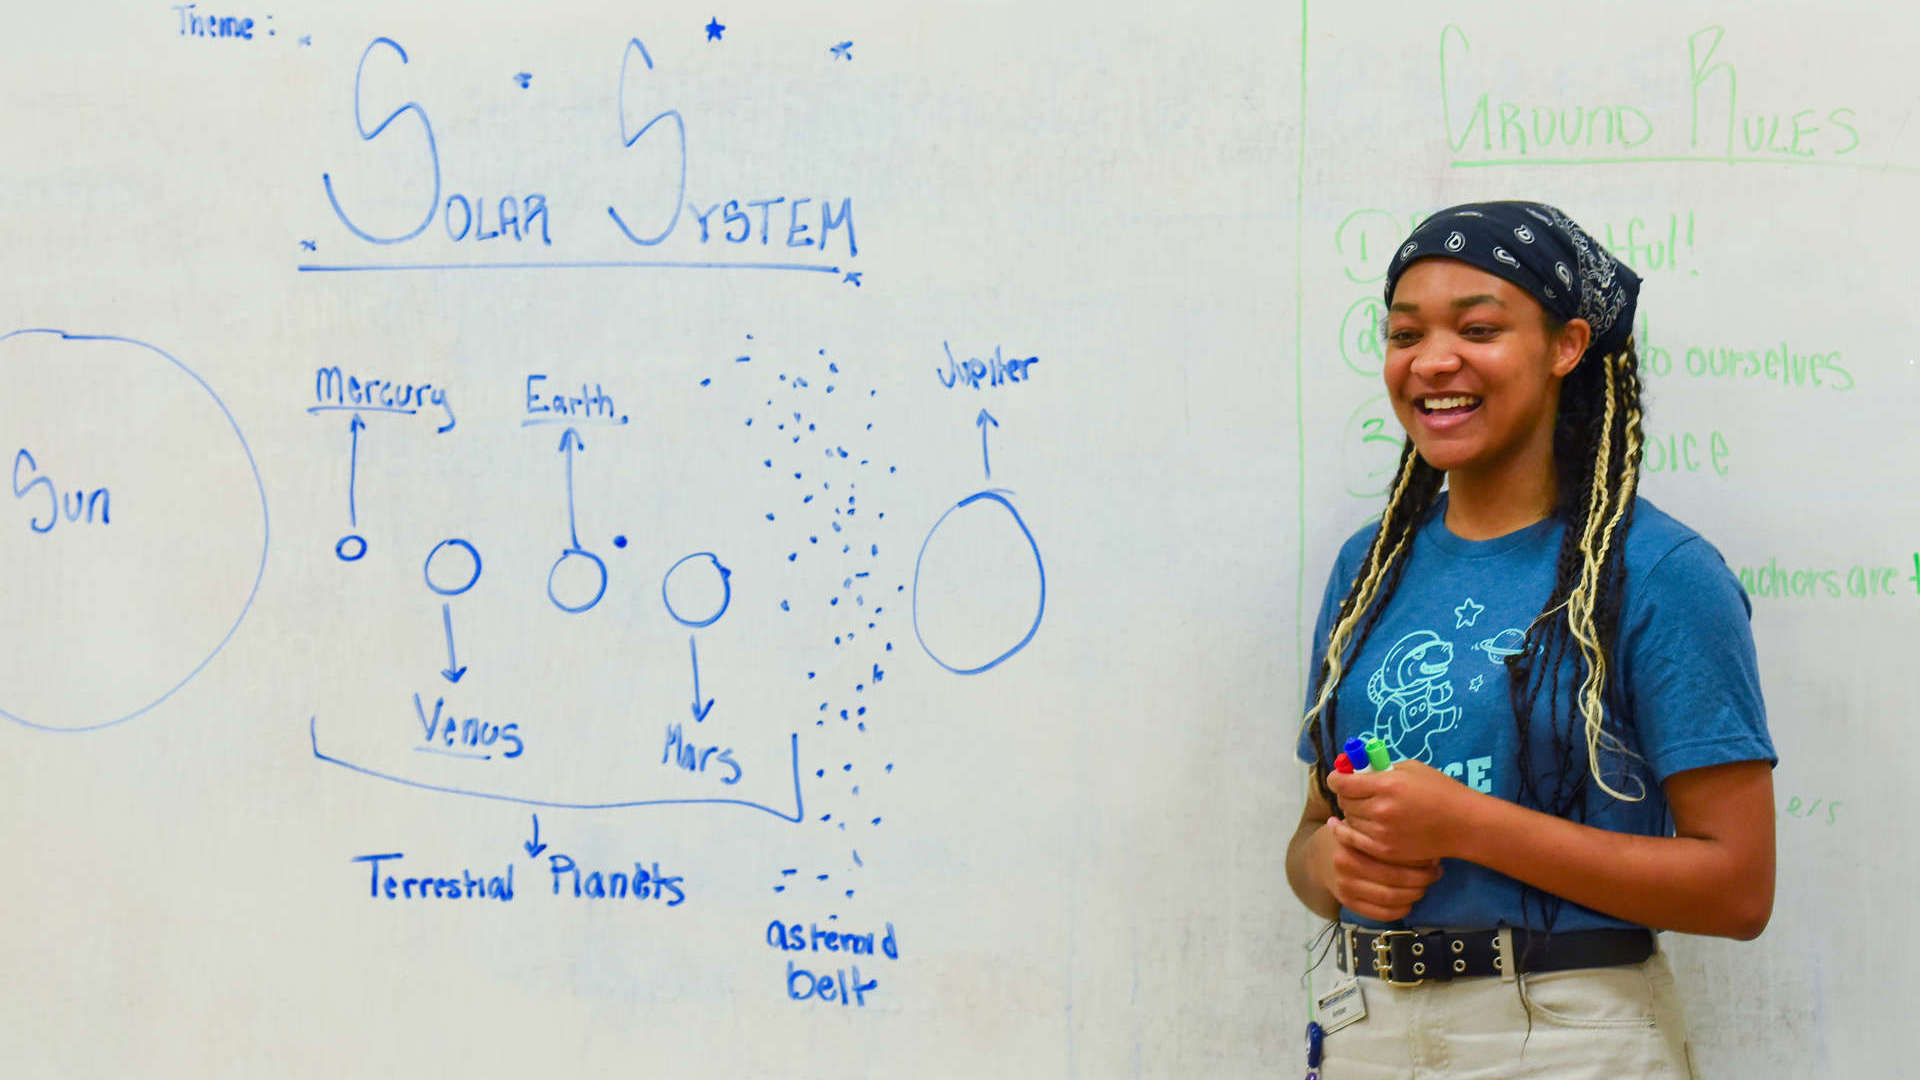 Theme:
SOLAR SYSTEM
Sun
Mercury
Earth.
Jupiter
Venus
Mars
Terrestrial Planets
asteroid
belt
GROUND RULES
1
2 to ourselves
3